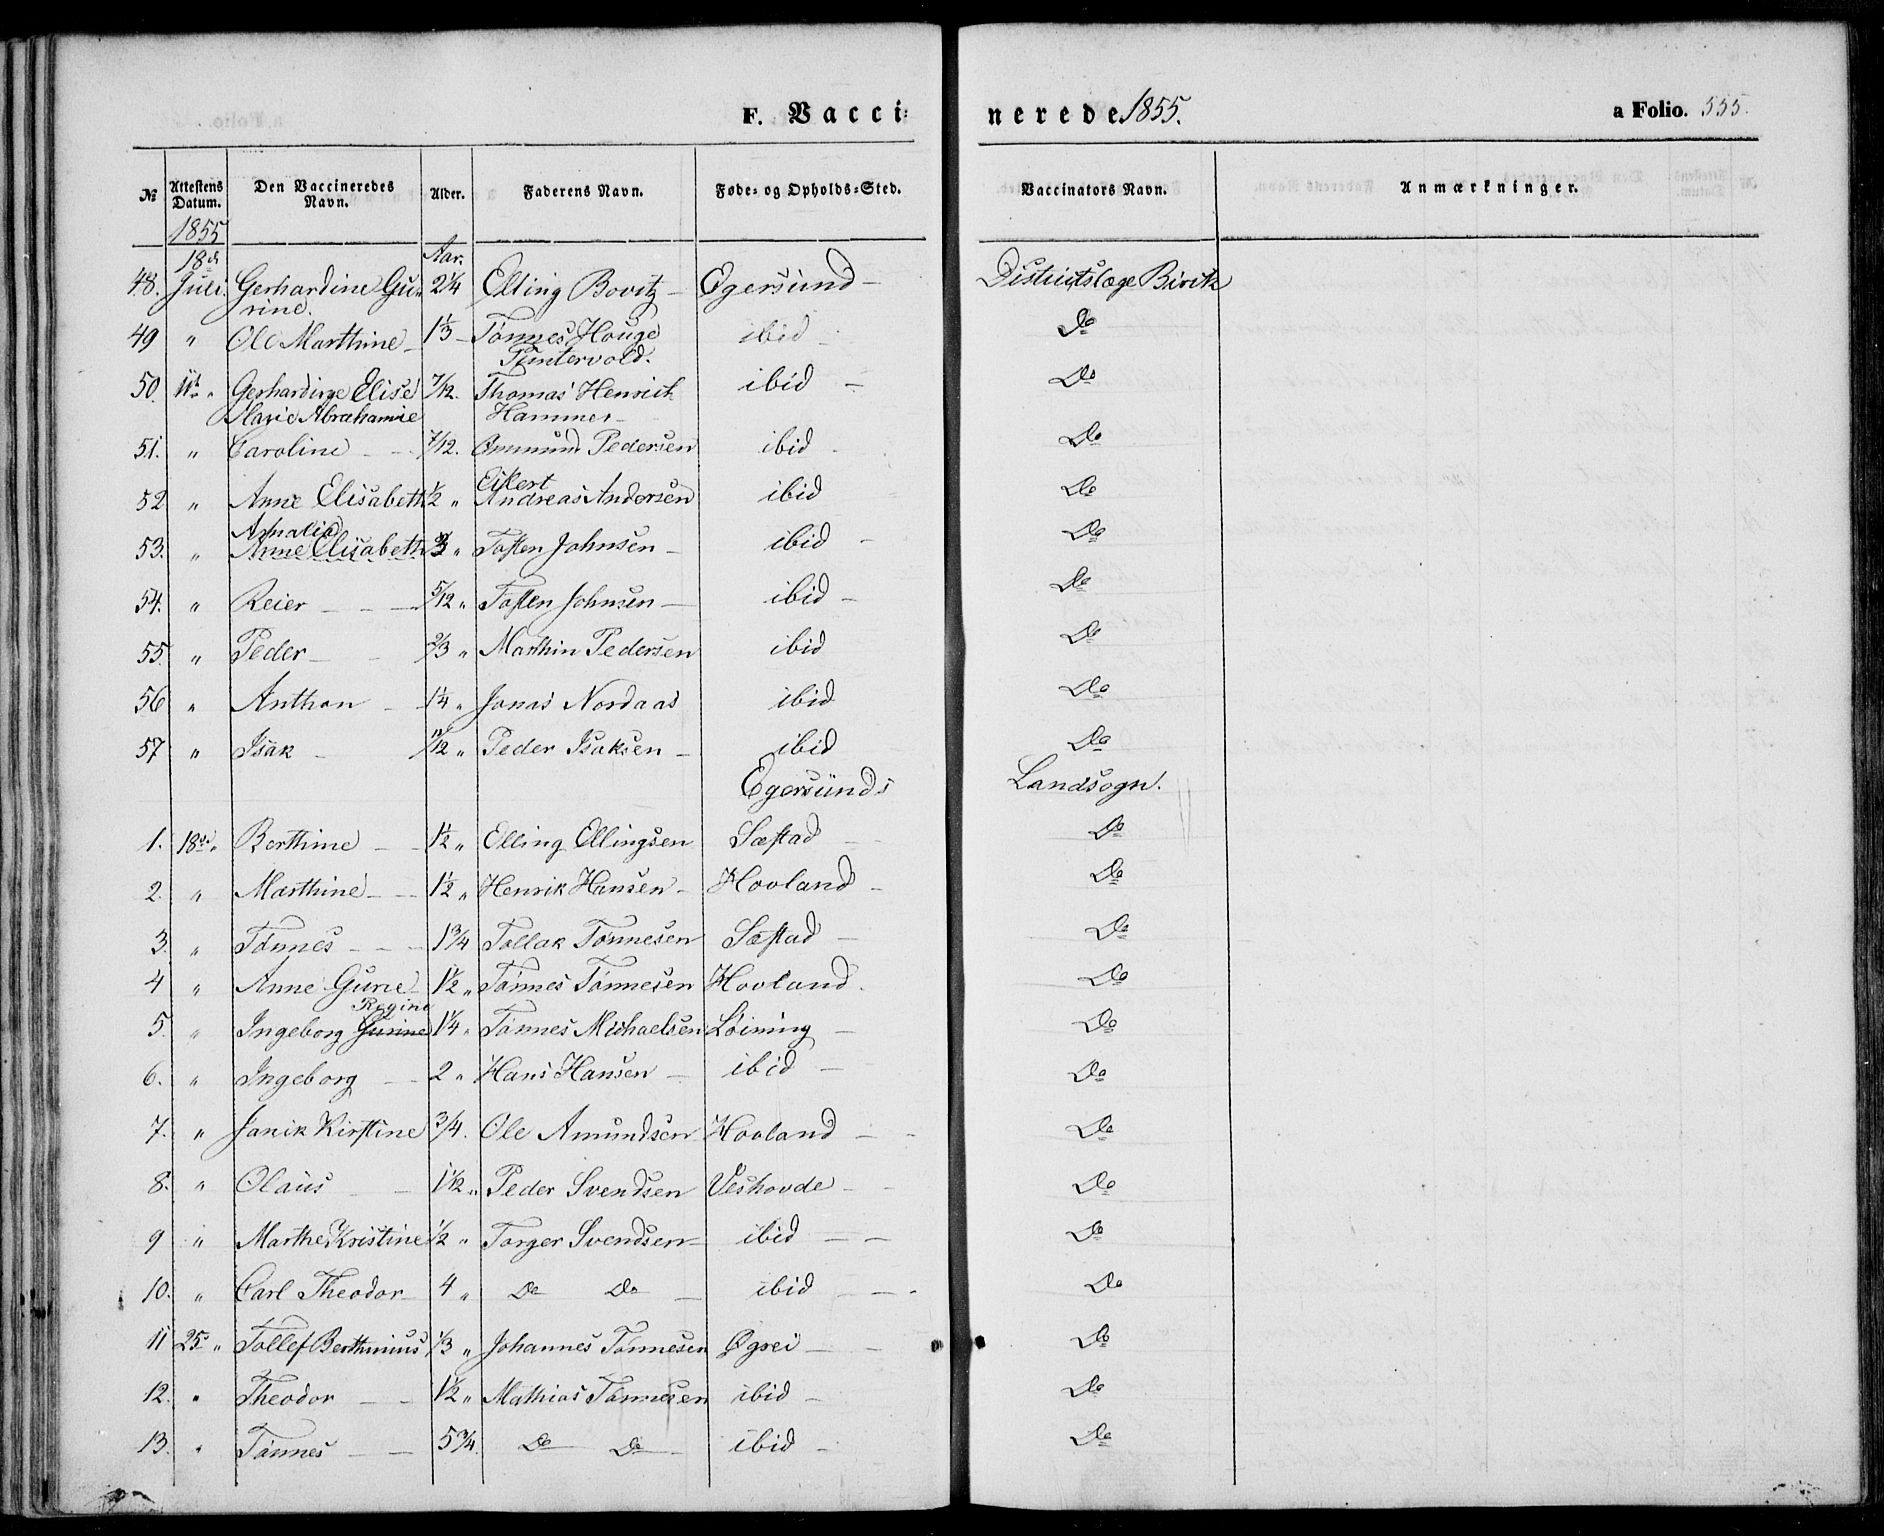 F. Vaccinerede 1855. a Folio. 555.
№ Attestens Datum. Den Vaccineredes Navn. Alder. Faderens Navn. Føde- og Opholds-Sted. Vaccinators Navn. Anmærkninger.
1855
18de Aar.
48. Juli. Gerhardine Gu- 2¼ Elling Bovitz - Egersund - Districtslæge Biritz
rine.
49 " Ole Marthine 1⅓ - Tønnes Houge ibid - Do
Puntervold.
50. " Gerhardine Elise 7/12. Thomas Henrich ibid - Do
Marie Abrahamie Hammer -
51. " Caroline - - 7/12. Ommund Pedersen ibid - Do
Eikert
52 " Anne Elisabeth ½ " Andreas Andersen ibid Do
Amalia
53. " Anne Elisabeth " Tosten Johnsen - ibid - Do
54. " Reier - - - 5/12 " Tosten Johnsen - ibid - Do
55. " Peder - - 2/3 " Marthin Pedersen ibid Do
56 " Anthon - 1¼ " Jonas Nordaas ibid Do
57 " Isak - 11/12 " Peder Isaksen - ibid Do
Egersunds Landsogn.
1. 18de " Berthine - - 1½ " Elling Ellingsen Sæstad - Do
2. " Marthine - - 1½ " Henrik Hansen - Hovland - Do
3. " Tønnes - - - 1¾ Tollak Tønnesen Sæstad - Do
4 " Anne Gurie 1½ " Tønnes Tønnesen Hovland. Do
Regine
5. " Ingeborg Gurine 1¼ " Tønnes Michaelsen Løining - Do
6. " Ingeborg - - 2 " Hans Hansen - ibid - Do
7. " Janik Kirstine 3/4. Ole Amundsen Hovland - - Do
8. " Olaus - - 1½ " Peder Svendsen Veshovde - - Do
9 " Marthe Kristine ½ " Torger Svendsen - ibid - - Do
10. " Carl Theodor - 4 " Do Do - ibid - - - Do
11 25 " Tollef Berthinius 1/3 " Johannes Tønnesen Øgrei - - Do
12. " Theodor - - 1½ " Mathias Tønnesen ibid - Do
13. " Tønnes - - 5¾. Do Do - ibid - Do